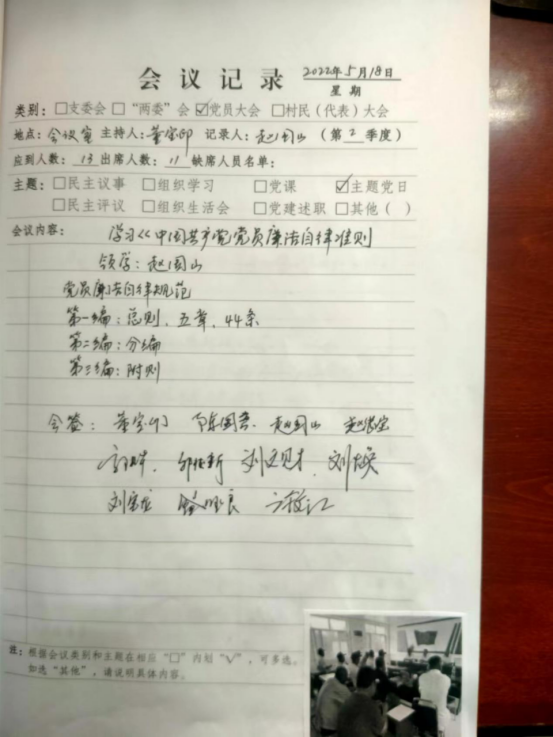 会议记录 2022年5月18日
星期
类别：□支委会 □“两委”会 ☑党员大会 □村民（代表）大会
地点：会议室 主持人：董宝印 记录人：赵国山 （第2季度）
应到人数：13 出席人数：11 缺席人员名单：
主题：□民主议事 □组织学习 □党课 ☑主题党日
□民主评议 □组织生活会 □党建述职 □其他（ ）
会议内容： 学习《中国共产党党员廉洁自律准则
领学：赵国山
党员廉洁自律规范
第一编：总则、五章、44条
第二编：分编
第三编：附则
会签： 赵国山
刘焕
注：根据会议类别和主题在相应“□”内划“√”，可多选。
如选“其他”，请说明具体内容。